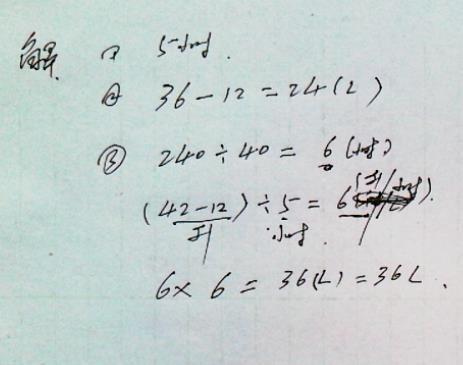 解 ① 5小时.
② 36-12=24(L)
③ 240÷40=6(小时)
(42-12)÷5=6(升/小时).
升 小时
6×6=36(L)=36L.